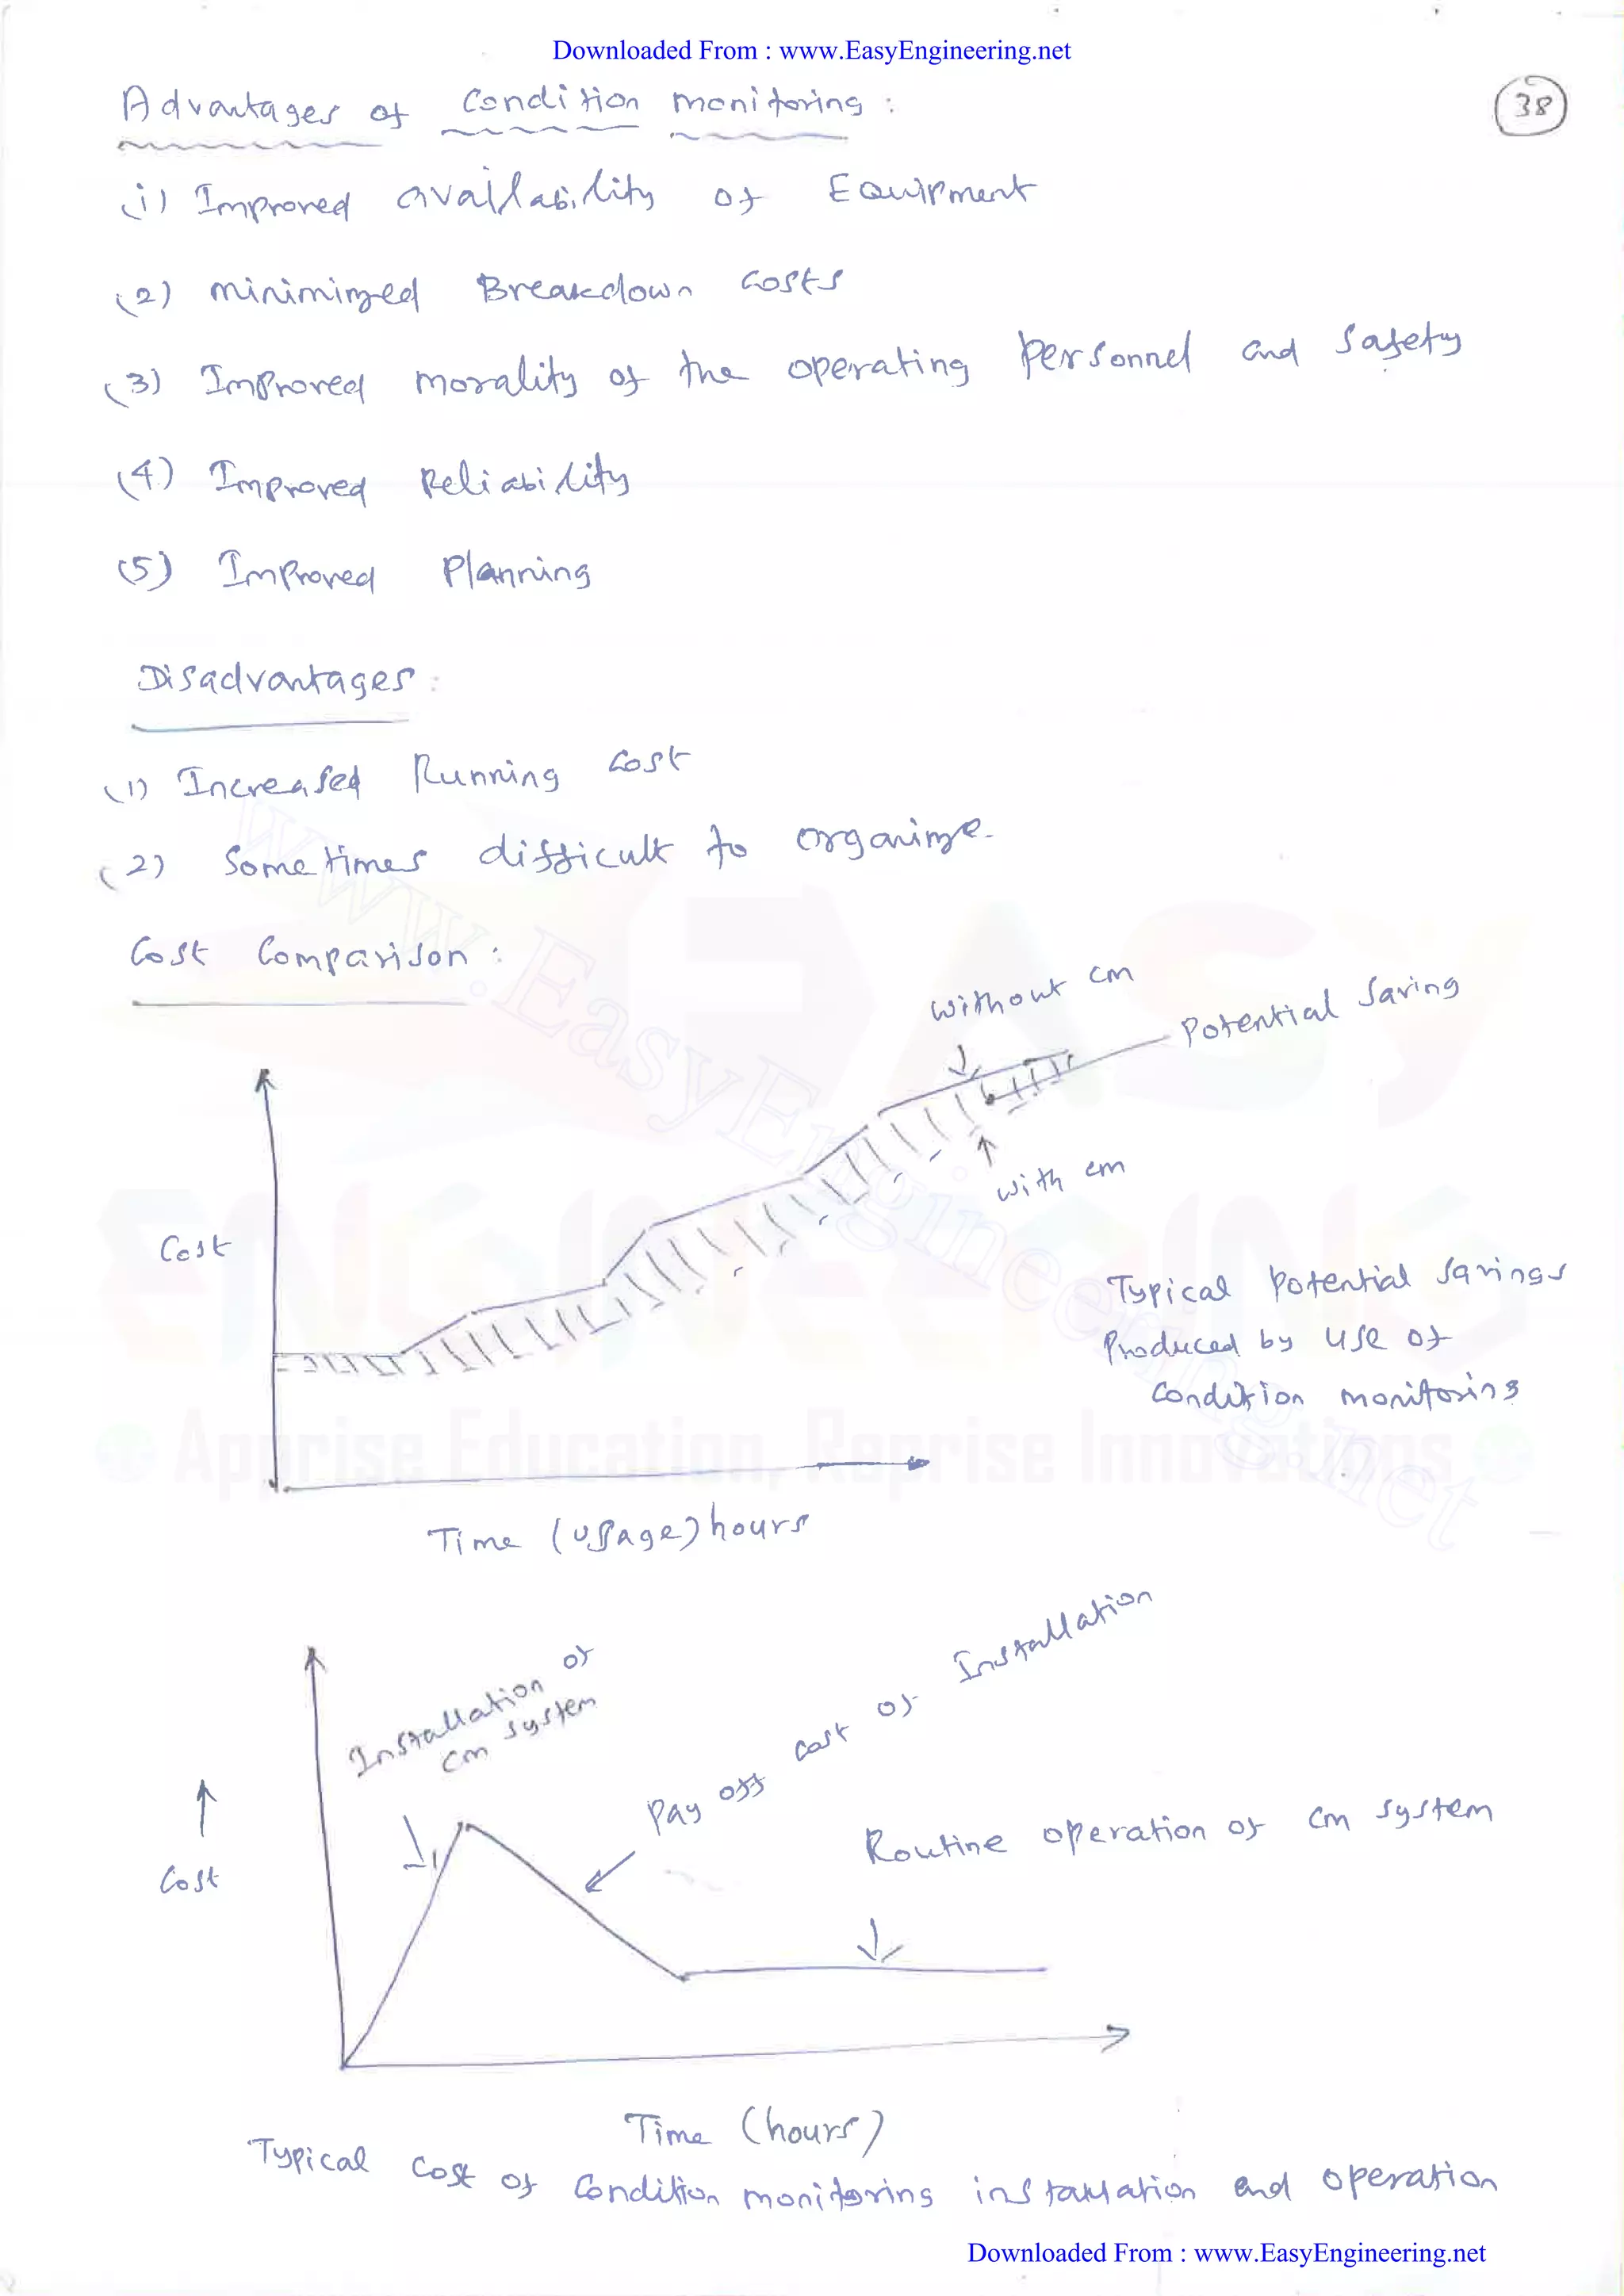 Downloaded From : www.EasyEngineering.net
38
Advantages of Condition monitoring :
(1) Improved availability of Equipment
(2) minimized Breakdown costs
(3) Improved morality of the operating personnel and safety
(4) Improved Reliability
(5) Improved Planning
Disadvantages :
(1) Increased Running cost
(2) Sometimes difficult to organize.
Cost Comparison :
Without cm
Potential Saving
with cm
Cost
Typical Potential savings
Produced by use of
Condition monitoring
Time (usage) hours
Installation of
cm system
Pay off cost of Installation
Routine operation of cm system
Cost
Time (hours)
Typical Cost of Condition monitoring installation and operation
www.EasyEngineering.net
EASY
ENGINEERING
Apprise Education, Reprise Innovations
Downloaded From : www.EasyEngineering.net